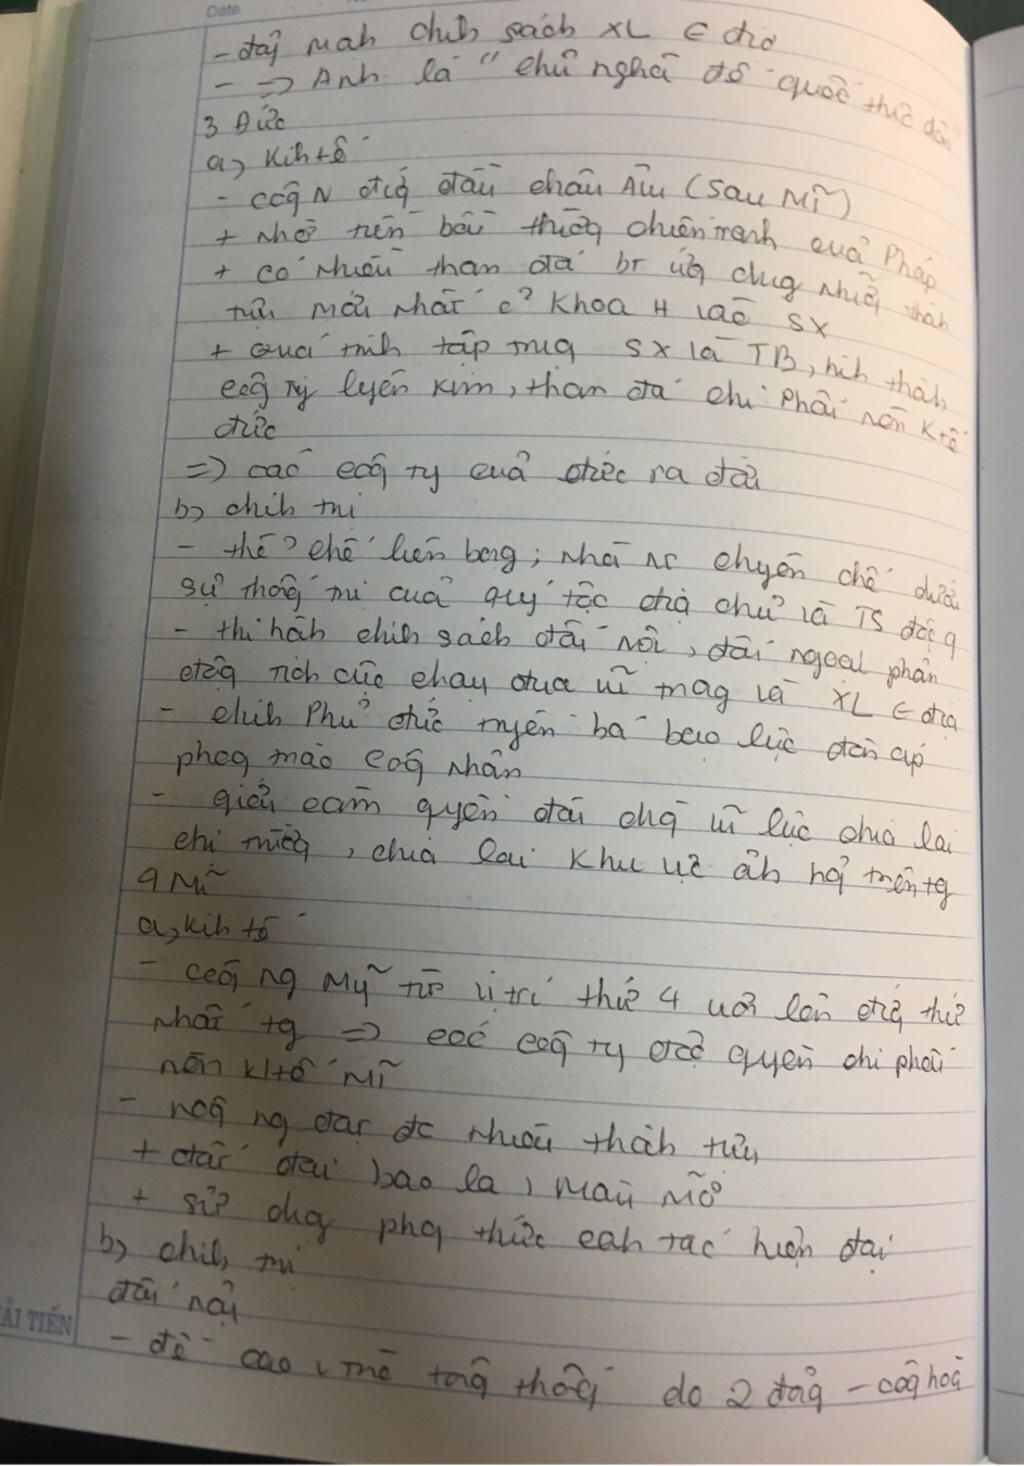 Date
- đẩy mah chíh sách XL ∈ địa
- => Anh là "chủ nghã đế quốc thực dân"
3 Đức
a, Kih tế
- côg N đứg đầu châu Âu (sau Mĩ)
+ Nhờ tiền bồi thườg chiến tranh của Pháp
+ có Nhiều than đá bt ứg dụg Nhữg thàh
tựu mới Nhất c² Khoa H vào SX
+ Quá trìh tập trug SX và TB, hìh thàh
côg ty lyện kim, than đá chi Phối nền Ktế
đức
=> các côg ty của đức ra đời
b, chíh trị
- thể chế liên bag; Nhà Nc chyên chế dưới
sự thốg trị của quý tộc địa chủ và TS độc q
- thi hàh chíh sách đối nội, đối ngoại phản
độg tích cực chạy đua vũ trag và XL ∈ địa
- chíh Phủ đức tuyên bố bạo lực đàn áp
phog trào côg Nhân
- giới cầm quyền đòi dùg vũ lực chia lại
thị trườg, chia lại Khu vực ảh hg trên tg
4 Mĩ
a, kih tế
- Côg ng Mỹ từ vị trí thứ 4 vơn lên đứg thứ
Nhất tg => các côg ty độc quyền chi phối
nền Ktế Mĩ
- nôg ng đạt đc Nhiều thàh tựu
+ đất đai bao la, màu Mỡ
+ sử dụg phg thức cah tác hiện đại
b, chíh trị
đối nội
- đề cao tổg thốg do 2 đảg - cộg hoà
ẢI TIẾN